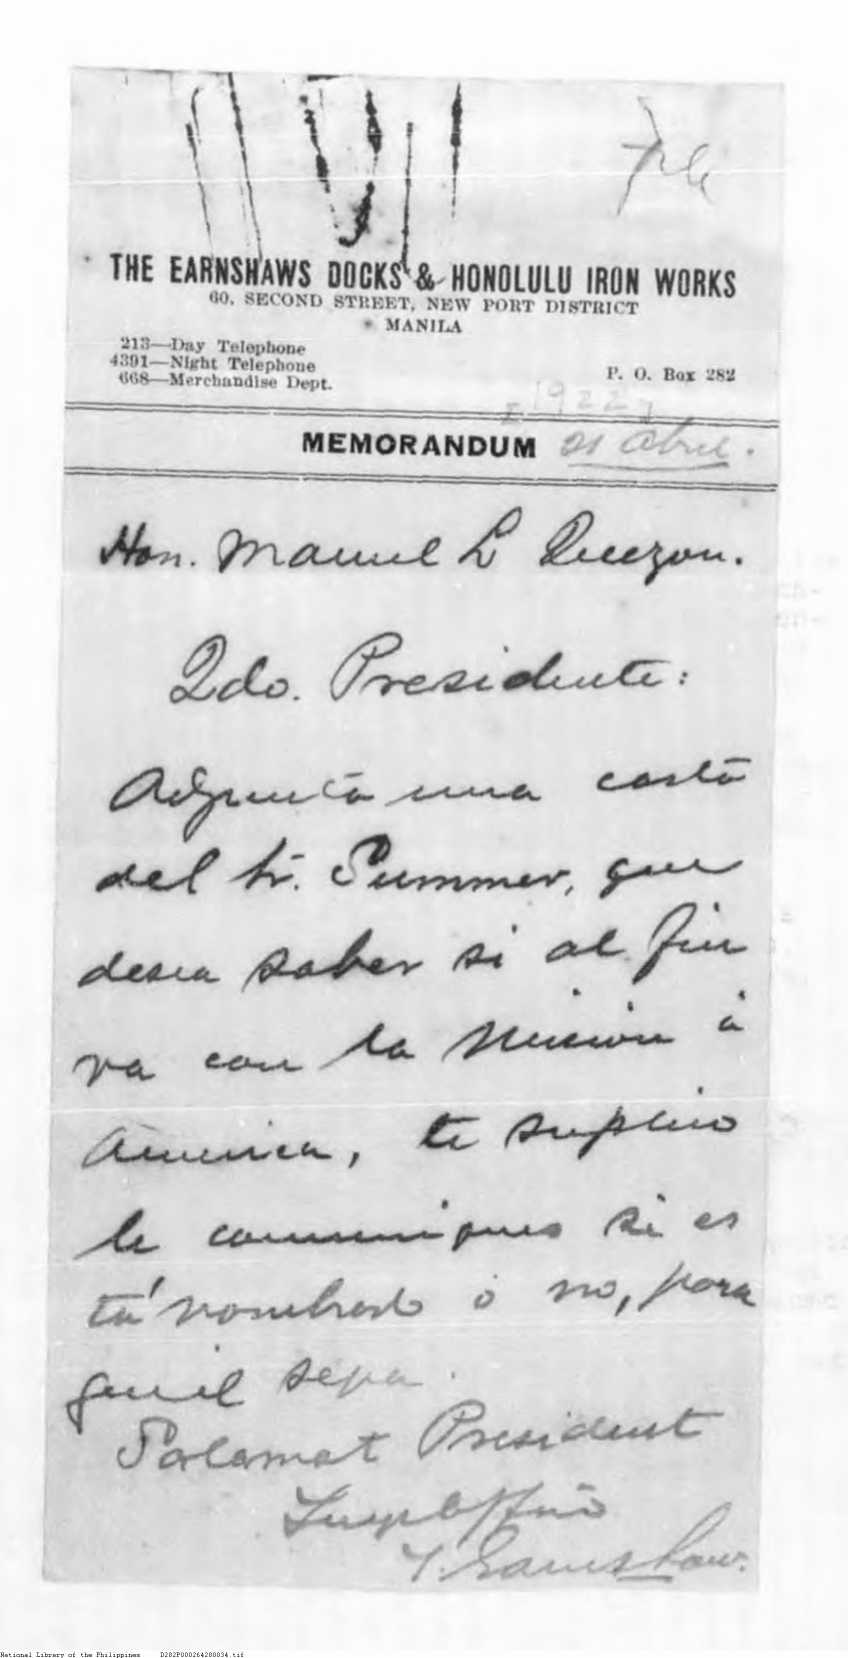 File
THE EARNSHAWS DOCKS & HONOLULU IRON WORKS
60, SECOND STREET, NEW PORT DISTRICT
MANILA
213—Day Telephone
4391—Night Telephone
668—Merchandise Dept.
P. O. Box 282
[1922]
MEMORANDUM 21 Abril.
Hon. Manuel L Quezon.
Qdo. Presidente:
Adjunta una carta
del Sr. Summer, que
desea saber si al fin
va con la Mision á
America, te suplico
le comuniques si es
tá nombrado ó no, para
que él sepa.
Salamat President
Tuyo affmo
T. Earnshaw.
National Library of the Philippines D282P000264280034.tif